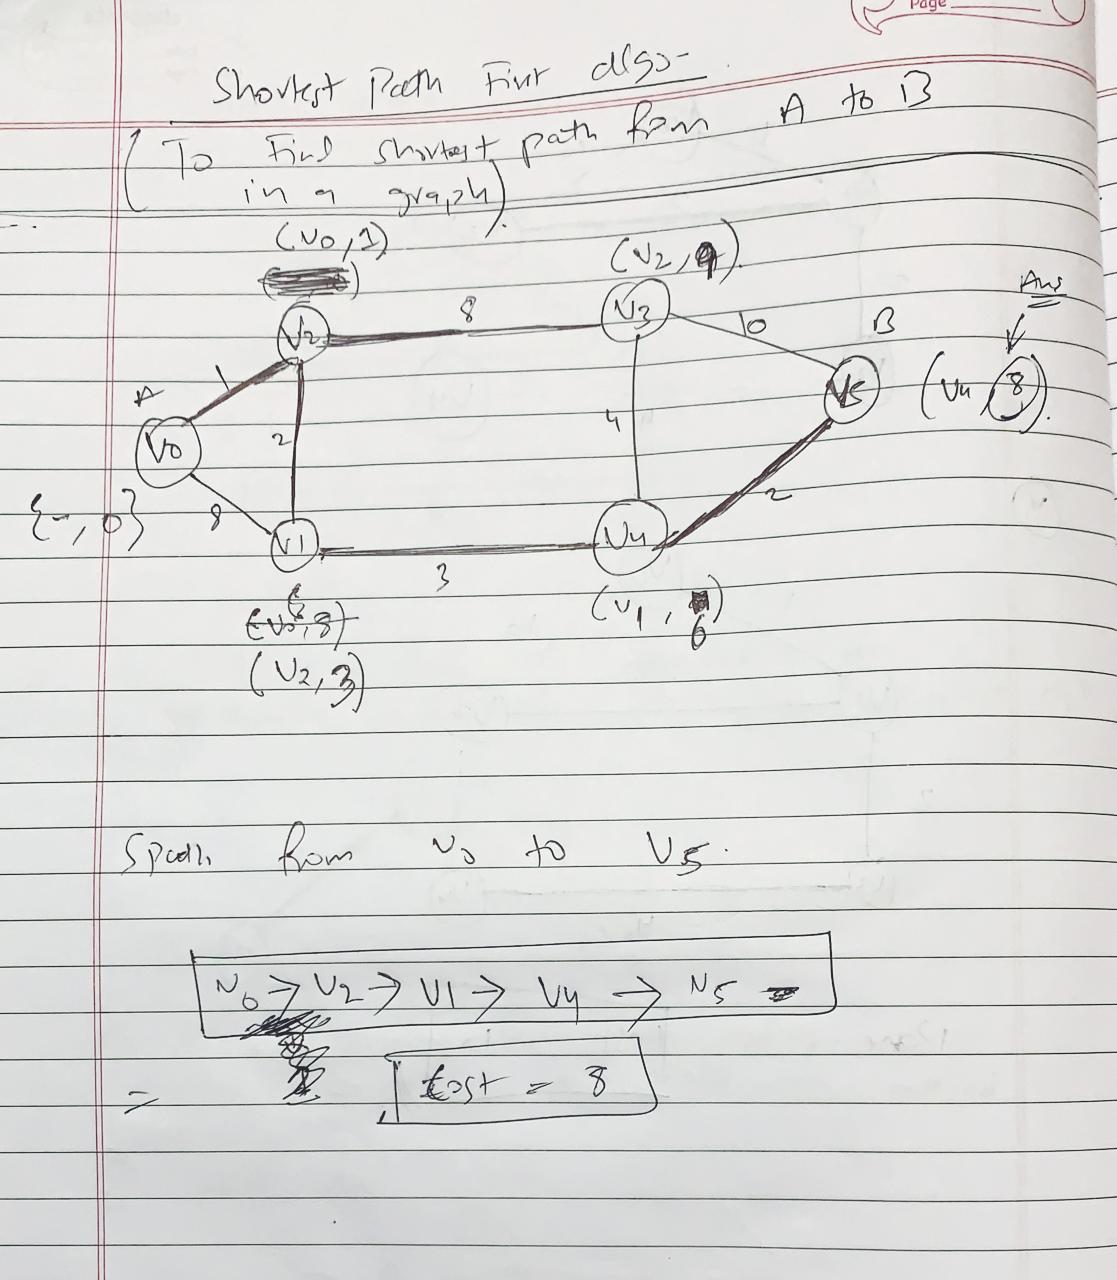 Page
Shortest Path First algo-
(To Find shortest path from A to B
in a graph).
(V0,1)
(V2,9).
Ans
8
V2
V3
10
B
A
1
V5
(V4,8).
V0
2
4
{-,0}
8
2
V1
V4
3
(V0,8)
(V1,
6
)
(V2,3)
Spath from V0 to V5.
V0 → V2 → V1 → V4 → V5
= Cost = 8